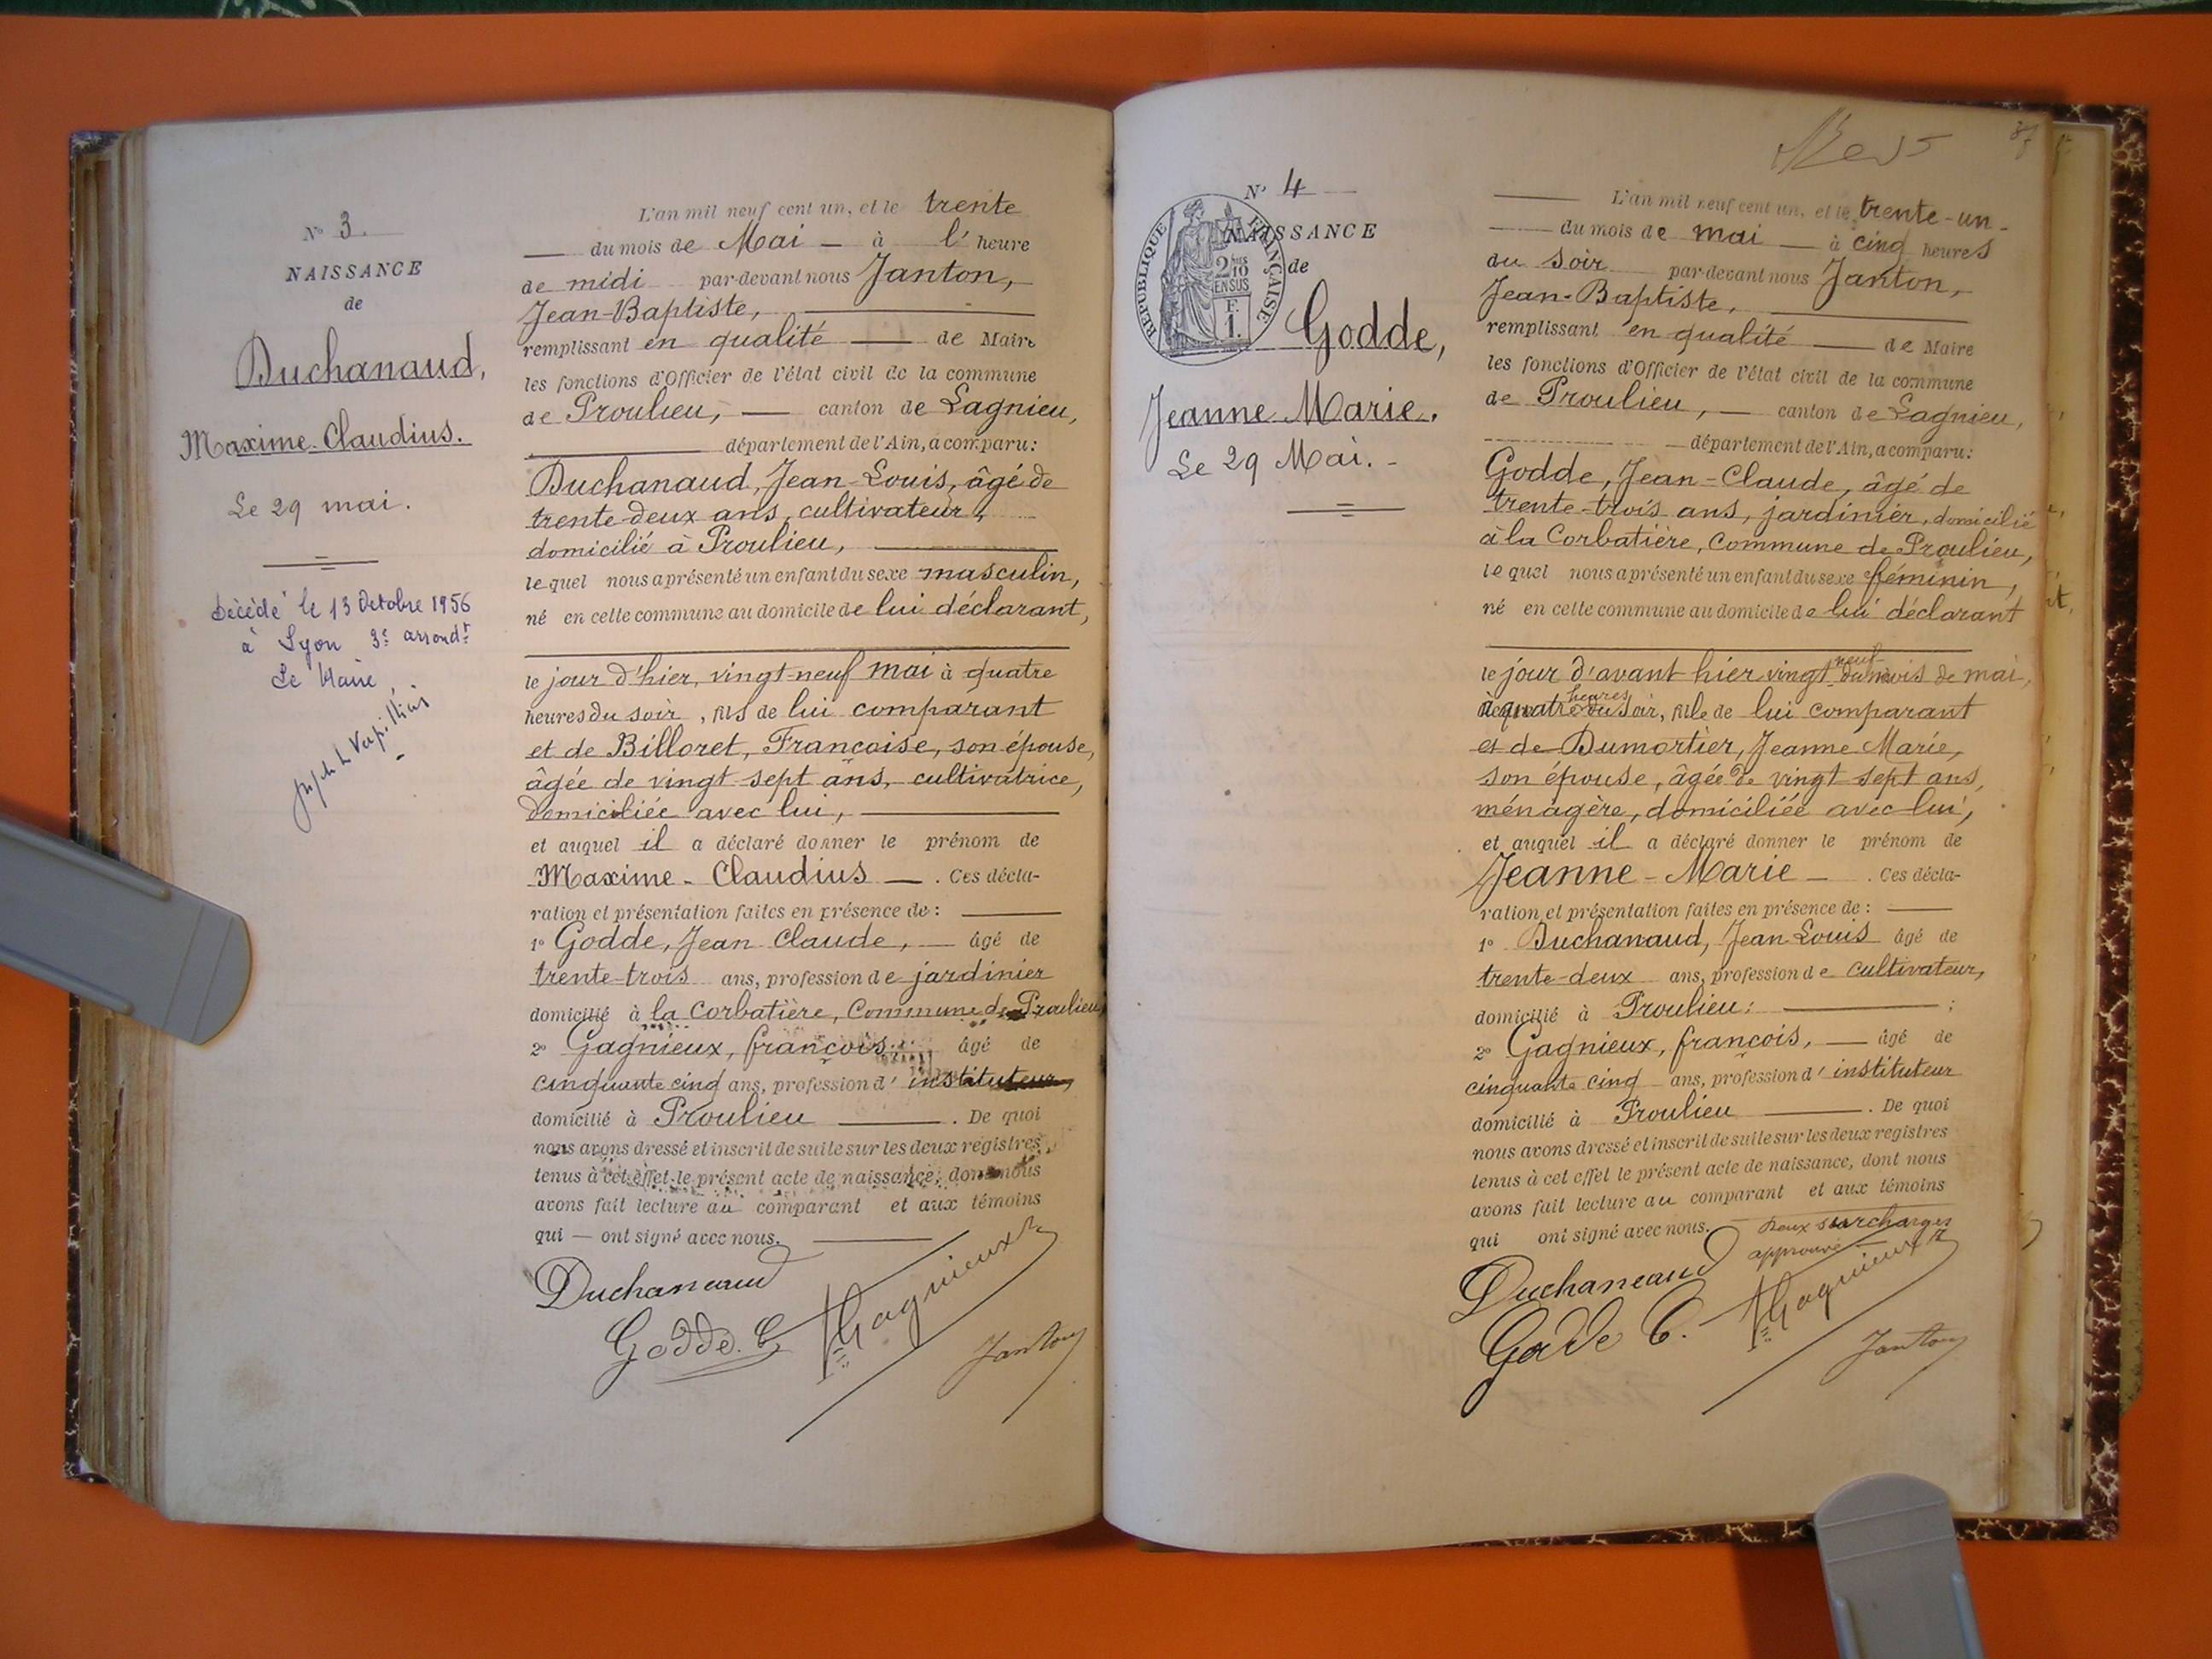 N° 3.
NAISSANCE
de
Duchanaud,
Maxime-Claudius.
Le 29 mai.
Décédé le 13 Octobre 1956
à Lyon 3e arrondt
Le Maire,
L'an mil neuf cent un, et le trente
du mois de Mai — à l' heure
de midi par-devant nous Janton,
Jean-Baptiste,
remplissant en qualité — de Maire
les fonctions d'Officier de l'état civil de la commune
de Proulieu, — canton de Lagnieu,
département de l'Ain, a comparu:
Duchanaud, Jean-Louis, âgé de
trente-deux ans, cultivateur,
domicilié à Proulieu,
lequel nous a présenté un enfant du sexe masculin,
né en cette commune au domicile de lui déclarant,
le jour d'hier, vingt-neuf mai à quatre
heures du soir, fils de lui comparant
et de Billoret, Françoise, son épouse,
âgée de vingt sept ans, cultivatrice,
domiciliée avec lui,
et auquel il a déclaré donner le prénom de
Maxime-Claudius — . Ces décla-
ration et présentation faites en présence de:
1° Godde, Jean Claude, — âgé de
trente-trois ans, profession de jardinier
domicilié à la Corbatière, Commune de Proulieu
2° Gagnieux, françois, âgé de
cinquante cinq ans, profession d'instituteur,
domicilié à Proulieu — . De quoi
nous avons dressé et inscrit de suite sur les deux registres
tenus à cet effet le présent acte de naissance, dont nous
avons fait lecture au comparant et aux témoins
qui — ont signé avec nous.
Duchaneaud
Godde. C
Gagnieux
Janton
N° 4
NAISSANCE
de
REPUBLIQUE FRANÇAISE
2/10
EN SUS
F.
1.
Godde,
Jeanne Marie.
Le 29 Mai. -
L'an mil neuf cent un, et le trente-un
du mois de mai — à cinq heures
du soir par-devant nous Janton,
Jean-Baptiste,
remplissant en qualité — de Maire
les fonctions d'Officier de l'état civil de la commune
de Proulieu, — canton de Lagnieu,
département de l'Ain, a comparu:
Godde, Jean-Claude, âgé de
trente-trois ans, jardinier, domicilié
à la Corbatière, Commune de Proulieu,
lequel nous a présenté un enfant du sexe féminin,
né en cette commune au domicile de lui déclarant
le jour d'avant hier vingt neuf du mois de mai,
à quatre heures du soir, fille de lui comparant
et de Dumortier, Jeanne Marie,
son épouse, âgée de vingt sept ans,
ménagère, domiciliée avec lui,
et auquel il a déclaré donner le prénom de
Jeanne-Marie — . Ces décla-
ration et présentation faites en présence de:
1° Duchanaud, Jean Louis âgé de
trente-deux ans, profession de cultivateur,
domicilié à Proulieu; — ;
2° Gagnieux, françois, — âgé de
cinquante cinq ans, profession d'instituteur
domicilié à Proulieu — . De quoi
nous avons dressé et inscrit de suite sur les deux registres
tenus à cet effet le présent acte de naissance, dont nous
avons fait lecture au comparant et aux témoins
qui ont signé avec nous. — Deux surcharges
approuvé
Duchaneaud
Godde C.
Gagnieux
Janton